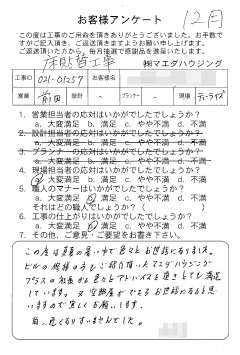 お客様アンケート
12月
この度は工事のご用命を頂きありがとうございます。お手数で
すがご記入頂き、ご返送頂きますようお願い申し上げます。
ご返送頂いた方から、毎月抽選で感謝品を進呈いたします。
床貼替工事
㈱マエダハウジング
工事ID 021-01257 お客様名
営業 前田 設計 − プランナー − 現場 ティーライズ
1. 営業担当者の応対はいかがでしたでしょうか?
a. 大変満足 b. 満足 c. やや不満 d. 不満
2. 設計担当者の応対はいかがでしたでしょうか?
a. 大変満足 b. 満足 c. やや不満 d. 不満
3. プランナーの応対はいかがでしたでしょうか?
a. 大変満足 b. 満足 c. やや不満 d. 不満
4. 現場担当者の応対はいかがでしたでしょうか?
a. 大変満足 b. 満足 c. やや不満 d. 不満
5. 職人のマナーはいかがでしたでしょうか?
a. 大変満足 b. 満足 c. やや不満 d. 不満
それはどの職人でしょうか?( )
6. 工事の仕上がりはいかがでしたでしょうか?
a. 大変満足 b. 満足 c. やや不満 d. 不満
7. その他、ご意見・ご要望をお書き下さい。
この度は真夏の暑い中で色々とお世話になりました。
ビルの関係の方もご紹介頂いたマエダハウジング
プラスの社長から色々とアドバイスを頂きとても満足
しています。又空調屋がでるとお世話になると思
いますので宜しくお願いします。
尚、遅くなりすいませんでした。